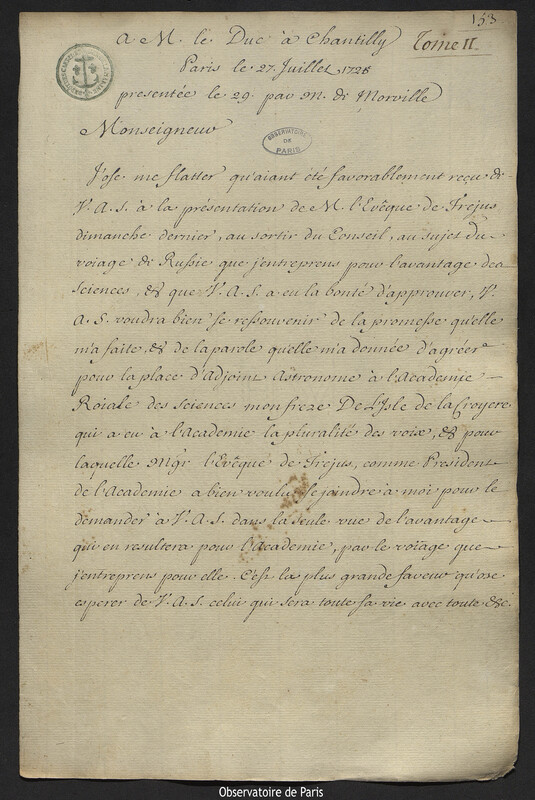 153
A M. le Duc à Chantilly Tome II.
Paris le 27. Juillet 1725
presentée le 29. par M. de Morville
Monseigneur
OBSERVATOIRE DE PARIS
J'ose me flatter qu'aiant été favorablement reçu de
V. A. S. à la présentation de M. l'Evêque de Frejus
dimanche dernier, au sortir du Conseil, au sujet du
voiage de Russie que j'entreprens pour l'avantage des
sciences, & que V. A. S. a eu la bonté d'approuver, V.
A. S. voudra bien se ressouvenir de la promesse qu'elle
m'a faite, & de la parole quelle m'a donnée d'agréer
pour la place d'Adjoint Astronome à l'Academie
Roiale des sciences mon frere De L'Isle de la Croyere
qui a eu à l'Academie la pluralité des voix, & pour
laquelle Mgr l'Evêque de Frejus, comme President
de l'Academie a bien voulu se joindre à moi pour le
demander à V. A. S. dans la seule vue de l'avantage
qui en resultera pour l'Academie, par le voïage que
j'entreprens pour elle. C'est la plus grande faveur qu'ose
esperer de V. A. S. celui qui sera toute sa vie avec toute &c.
Observatoire de Paris